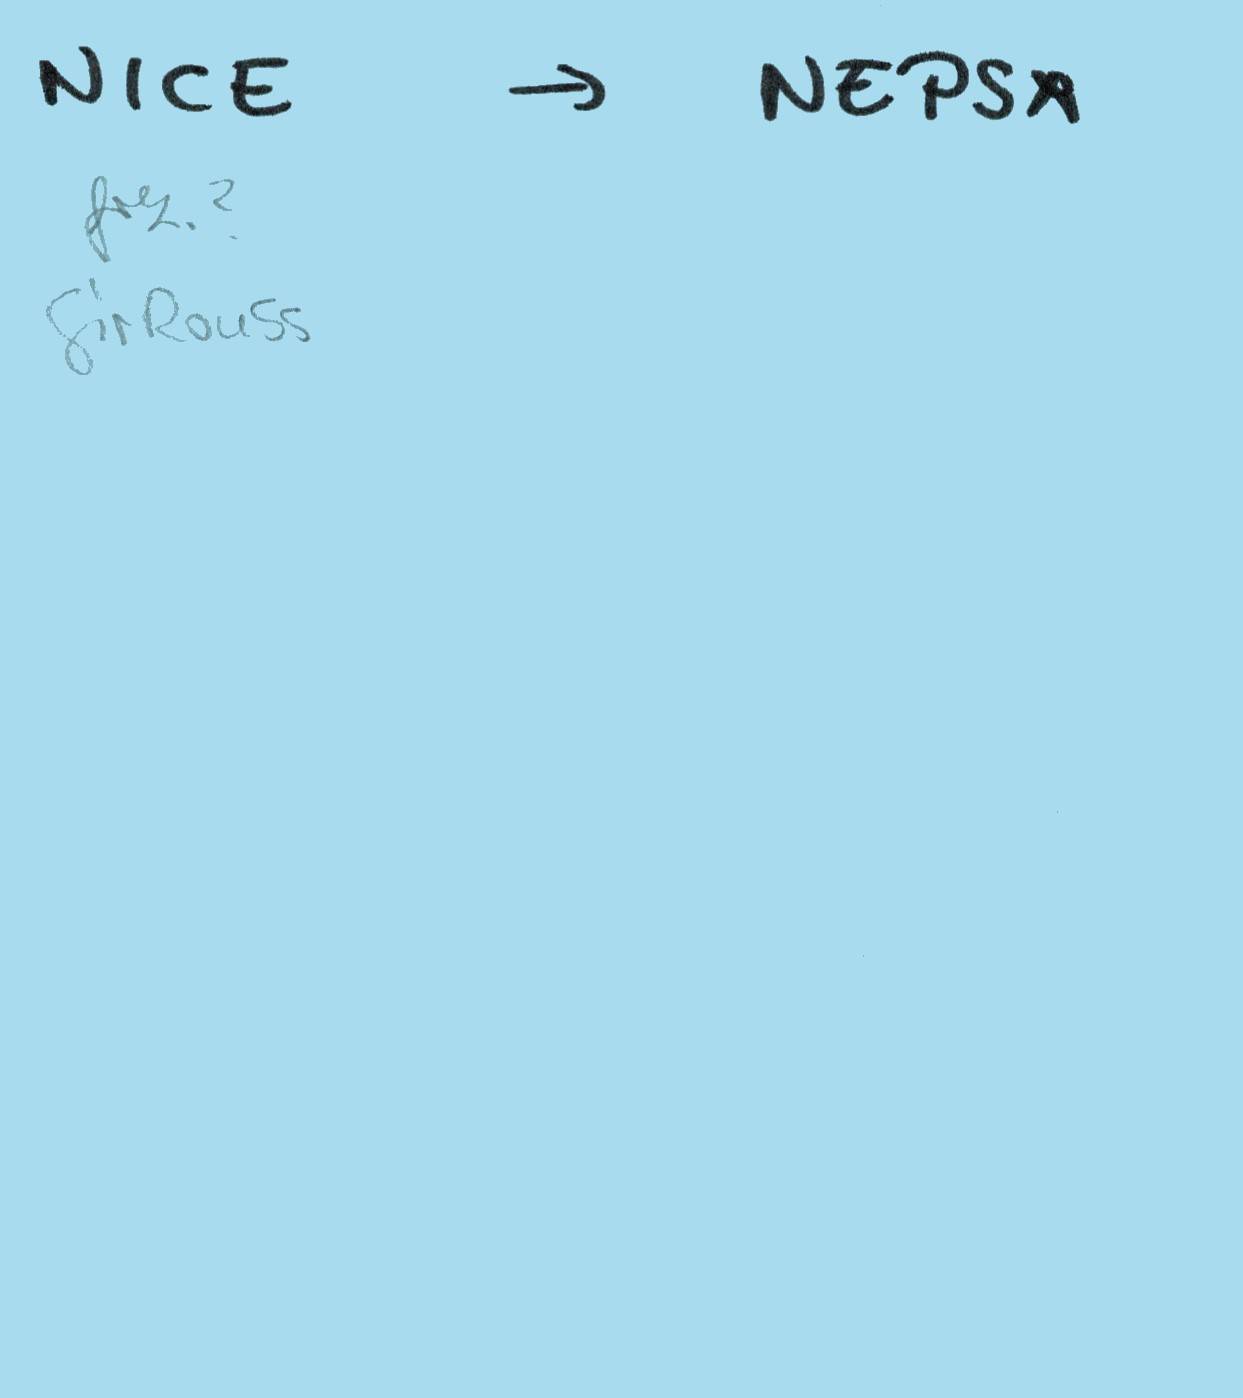 NICE → NEPSA
frz.?
GirRouss